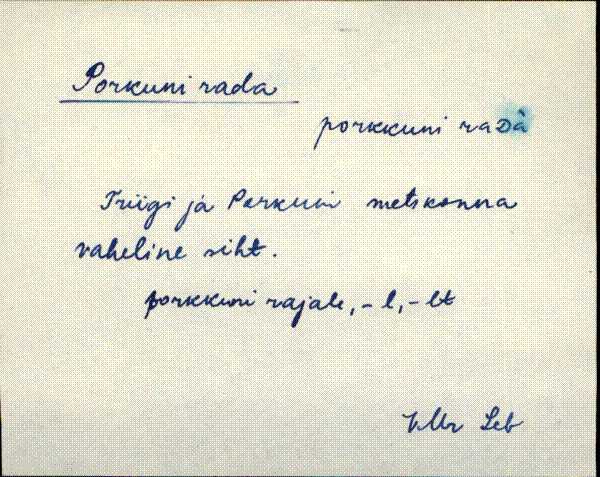 Porkuni rada
porkkuni raDà
Triigi ja Porkuni metskonna
vaheline siht.
porkkuni rajale, -l, -lt
VMr Leb